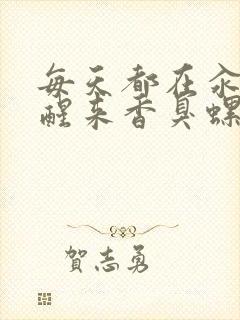 每天都在汆
醒来香臭螺
賀志勇